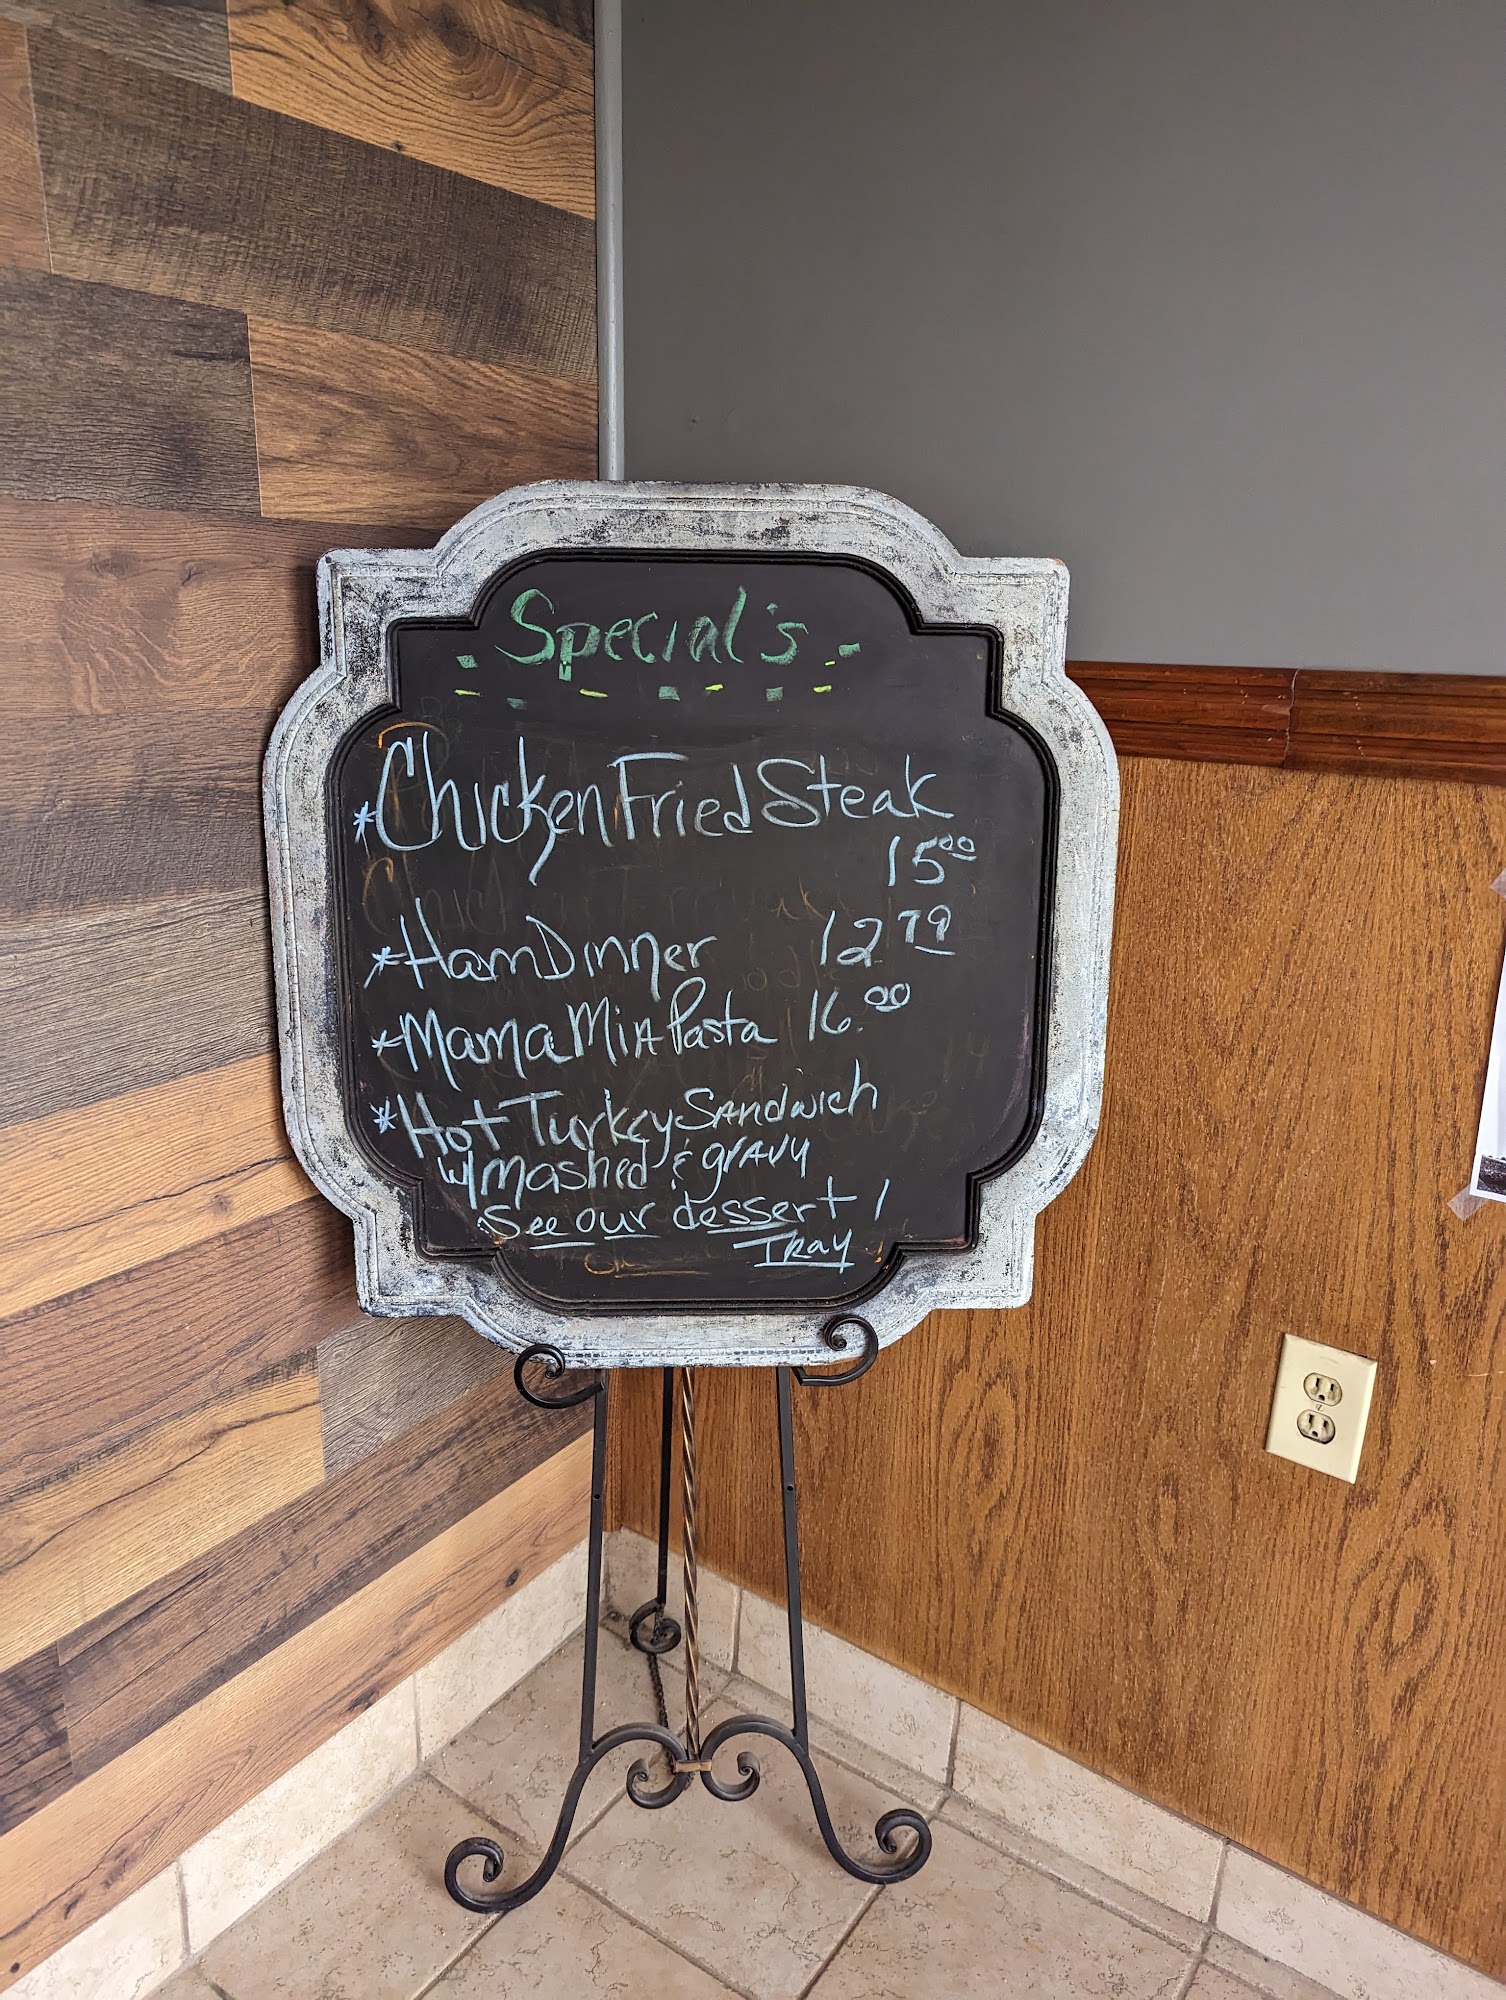 Special's
*Chicken Fried Steak
15.00
*Ham Dinner 12.79
*Mama Mia Pasta 16.00
*Hot Turkey Sandwich
w/ mashed & gravy
See our dessert !
Tray